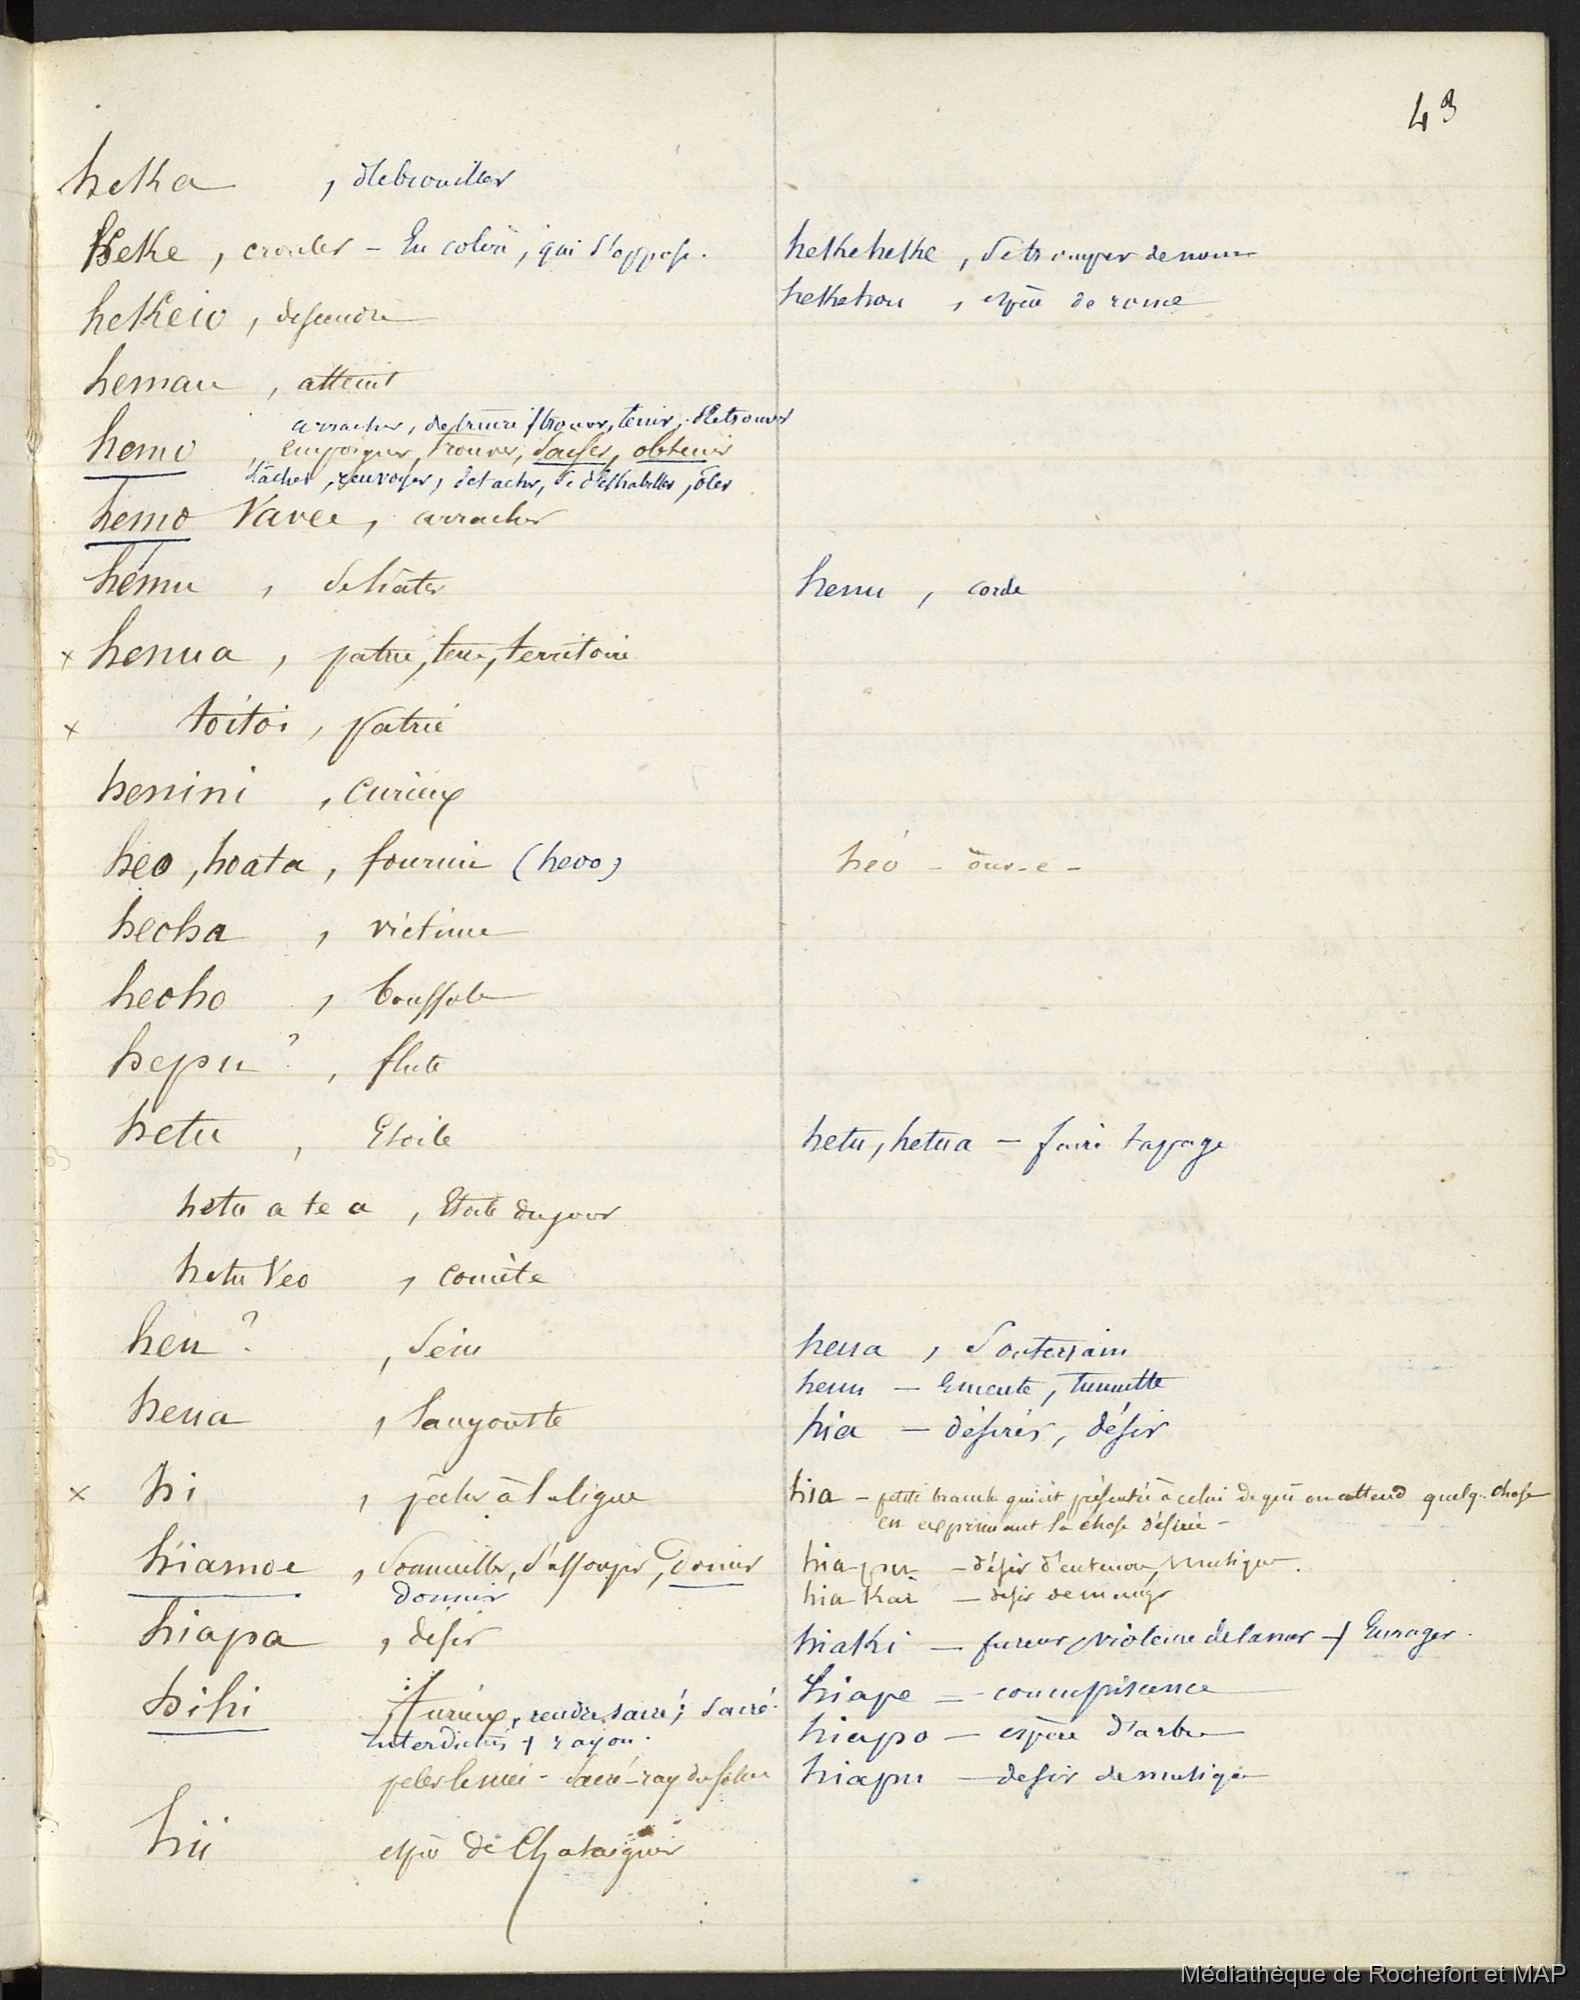 43
heka , débrouiller
heke , crouler - En colère, qui s'oppose.
hekeio , descendre
heman , atteint
arracher, détruire / trouver, tenir,
hemo , empoigner, trouver, obtenir
lâcher, renvoyer, détacher, se déshabiller, ôter
hemo Vavee , arracher
hému , se hâter
x henua , patrie, terre, territoire
x toitoi , patrie
henini , curieux
heo, hoata , fournir (hevo)
heoha , victime
heoho , boussole
hepu ? , flute
hetu , Etoile
hetu a te a , Etoile du jour
hetu Veo , comète
heu ? , sein
heua , langouste
x hi , pêcher à la ligne
hiamoe , sommeiller, s'assoupir, dormir
dormir
hiapa , désir
hihi , furieux, rendre sacré; sacré.
interdictis + rayon.
sacré - ray du soleil
hii espèce de Chataignier
hekeheke , détromper de nouv
hekehou , espèce de rome
henu , corde
heó -
hetu, hetua - faire tapage
heua , Souterrain
heuu - Emeute, tumulte
hia - désirer, désir
hia - petite branche qui est présentée à celui de qui on attend quelq. chose
en exprimant la chose désirée -
hia pu - désir d'entendre musique.
hia Kai - désir de manger
hiaki - fureur, violence de la mer + Enrager.
hiape - concupiscence
hiapo - espèce d'arbre
hiapu - desir de musique
Médiathèque de Rochefort et MAP